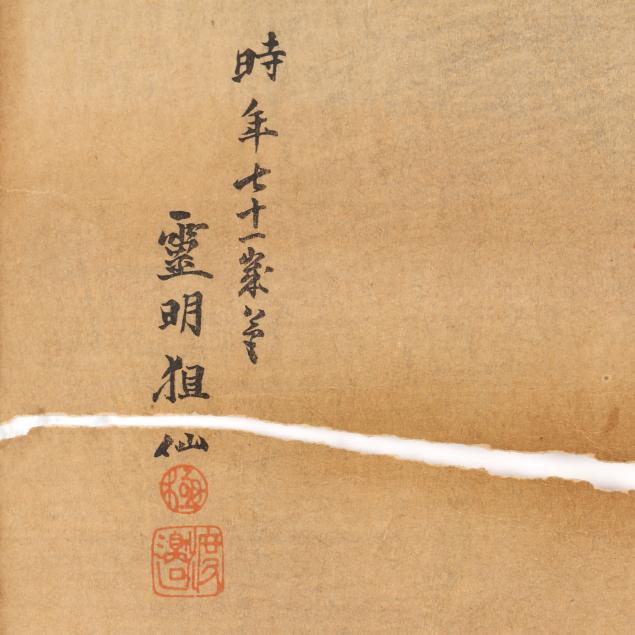 時年七十一歳筆
靈明狙仙